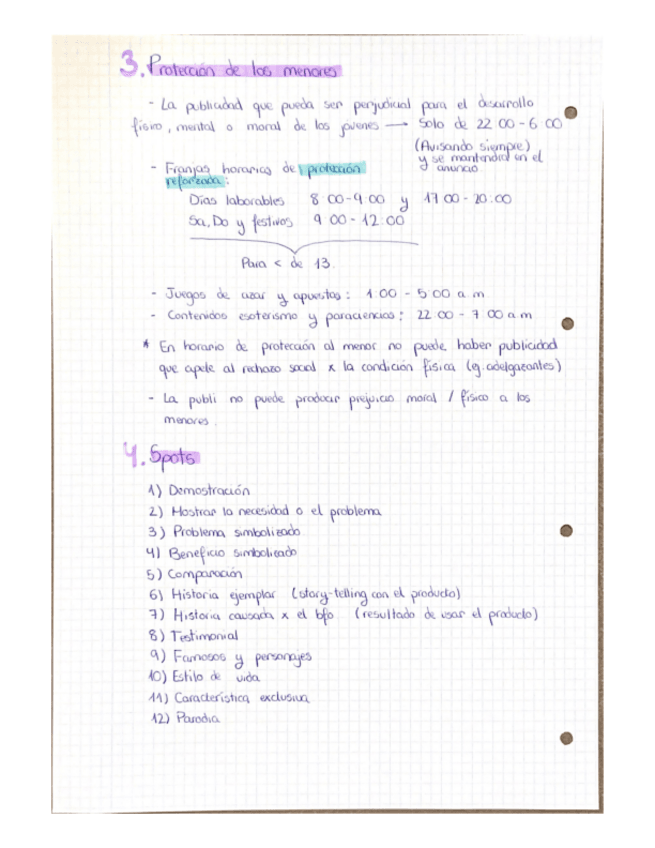 3. Protección de los menores
- La publicidad que pueda ser perjudicial para el desarrollo
físico, mental o moral de los jóvenes → Solo de 22:00-6:00
(Avisando siempre)
y se mantendrá en el
anuncio
- Franjas horarias de protección
reforzada:
Días laborables 8:00-9:00 y 17:00-20:00
Sa, Do y festivos 9:00-12:00
Para < de 13.
- Juegos de azar y apuestas: 1:00 - 5:00 a.m
- Contenidos esoterismo y paraciencias: 22:00 - 7:00 a.m
* En horario de protección al menor no puede haber publicidad
que apele al rechazo social x la condición física (eg. adelgazantes)
- La publi no puede producir prejuicio moral / físico a los
menores.
4. Spots
1) Demostración
2) Mostrar la necesidad o el problema
3) Problema simbolizado
4) Beneficio simbolizado
5) Comparación
6) Historia ejemplar (story-telling con el producto)
7) Historia causada x el bfo (resultado de usar el producto)
8) Testimonial
9) Famosos y personajes
10) Estilo de vida
11) Característica exclusiva
12) Parodia